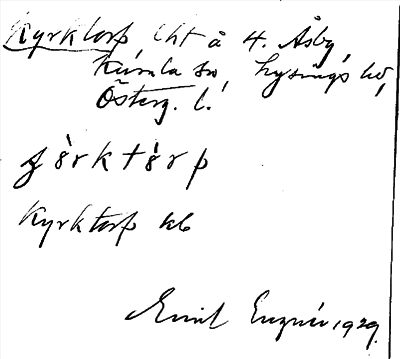 Kyrktorp, lht å 4. Åsby,
Kumla sn, Lysings hd,
Österg. l.
Kyrktorp kb
Emil Enqvir 1929.